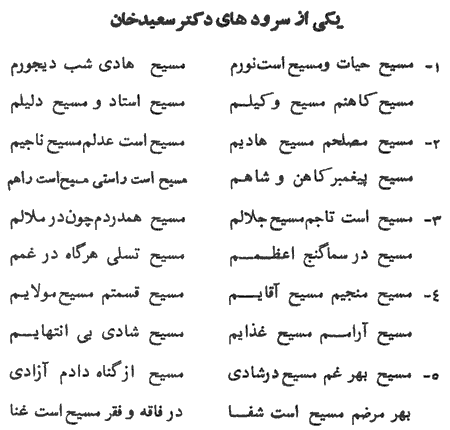 یکی از سرود های دکتر سعیدخان
۱- مسیح حیات ومسیح است نورم مسیح هادی شب دیجورم
مسیح کاهنم مسیح وکیلم مسیح استاد و مسیح دلیلم
۲- مسیح مصلحم مسیح هادیم مسیح است عدلم مسیح ناجیم
مسیح پیغمبر کاهن و شاهم مسیح است راستی مسیح است راهم
۳- مسیح است تاجم مسیح جلالم مسیح همدردم چون در ملالم
مسیح در سما گنج اعظمم مسیح تسلی هرگاه در غمم
۴- مسیح منجیم مسیح آقایم مسیح قسمتم مسیح مولایم
مسیح آرامم مسیح غذایم مسیح شادی بی انتهایم
۵- مسیح بهر غم مسیح درشادی مسیح از گناه دادم آزادی
بهر مرضم مسیح است شفا در فاقه و فقر مسیح است غنا